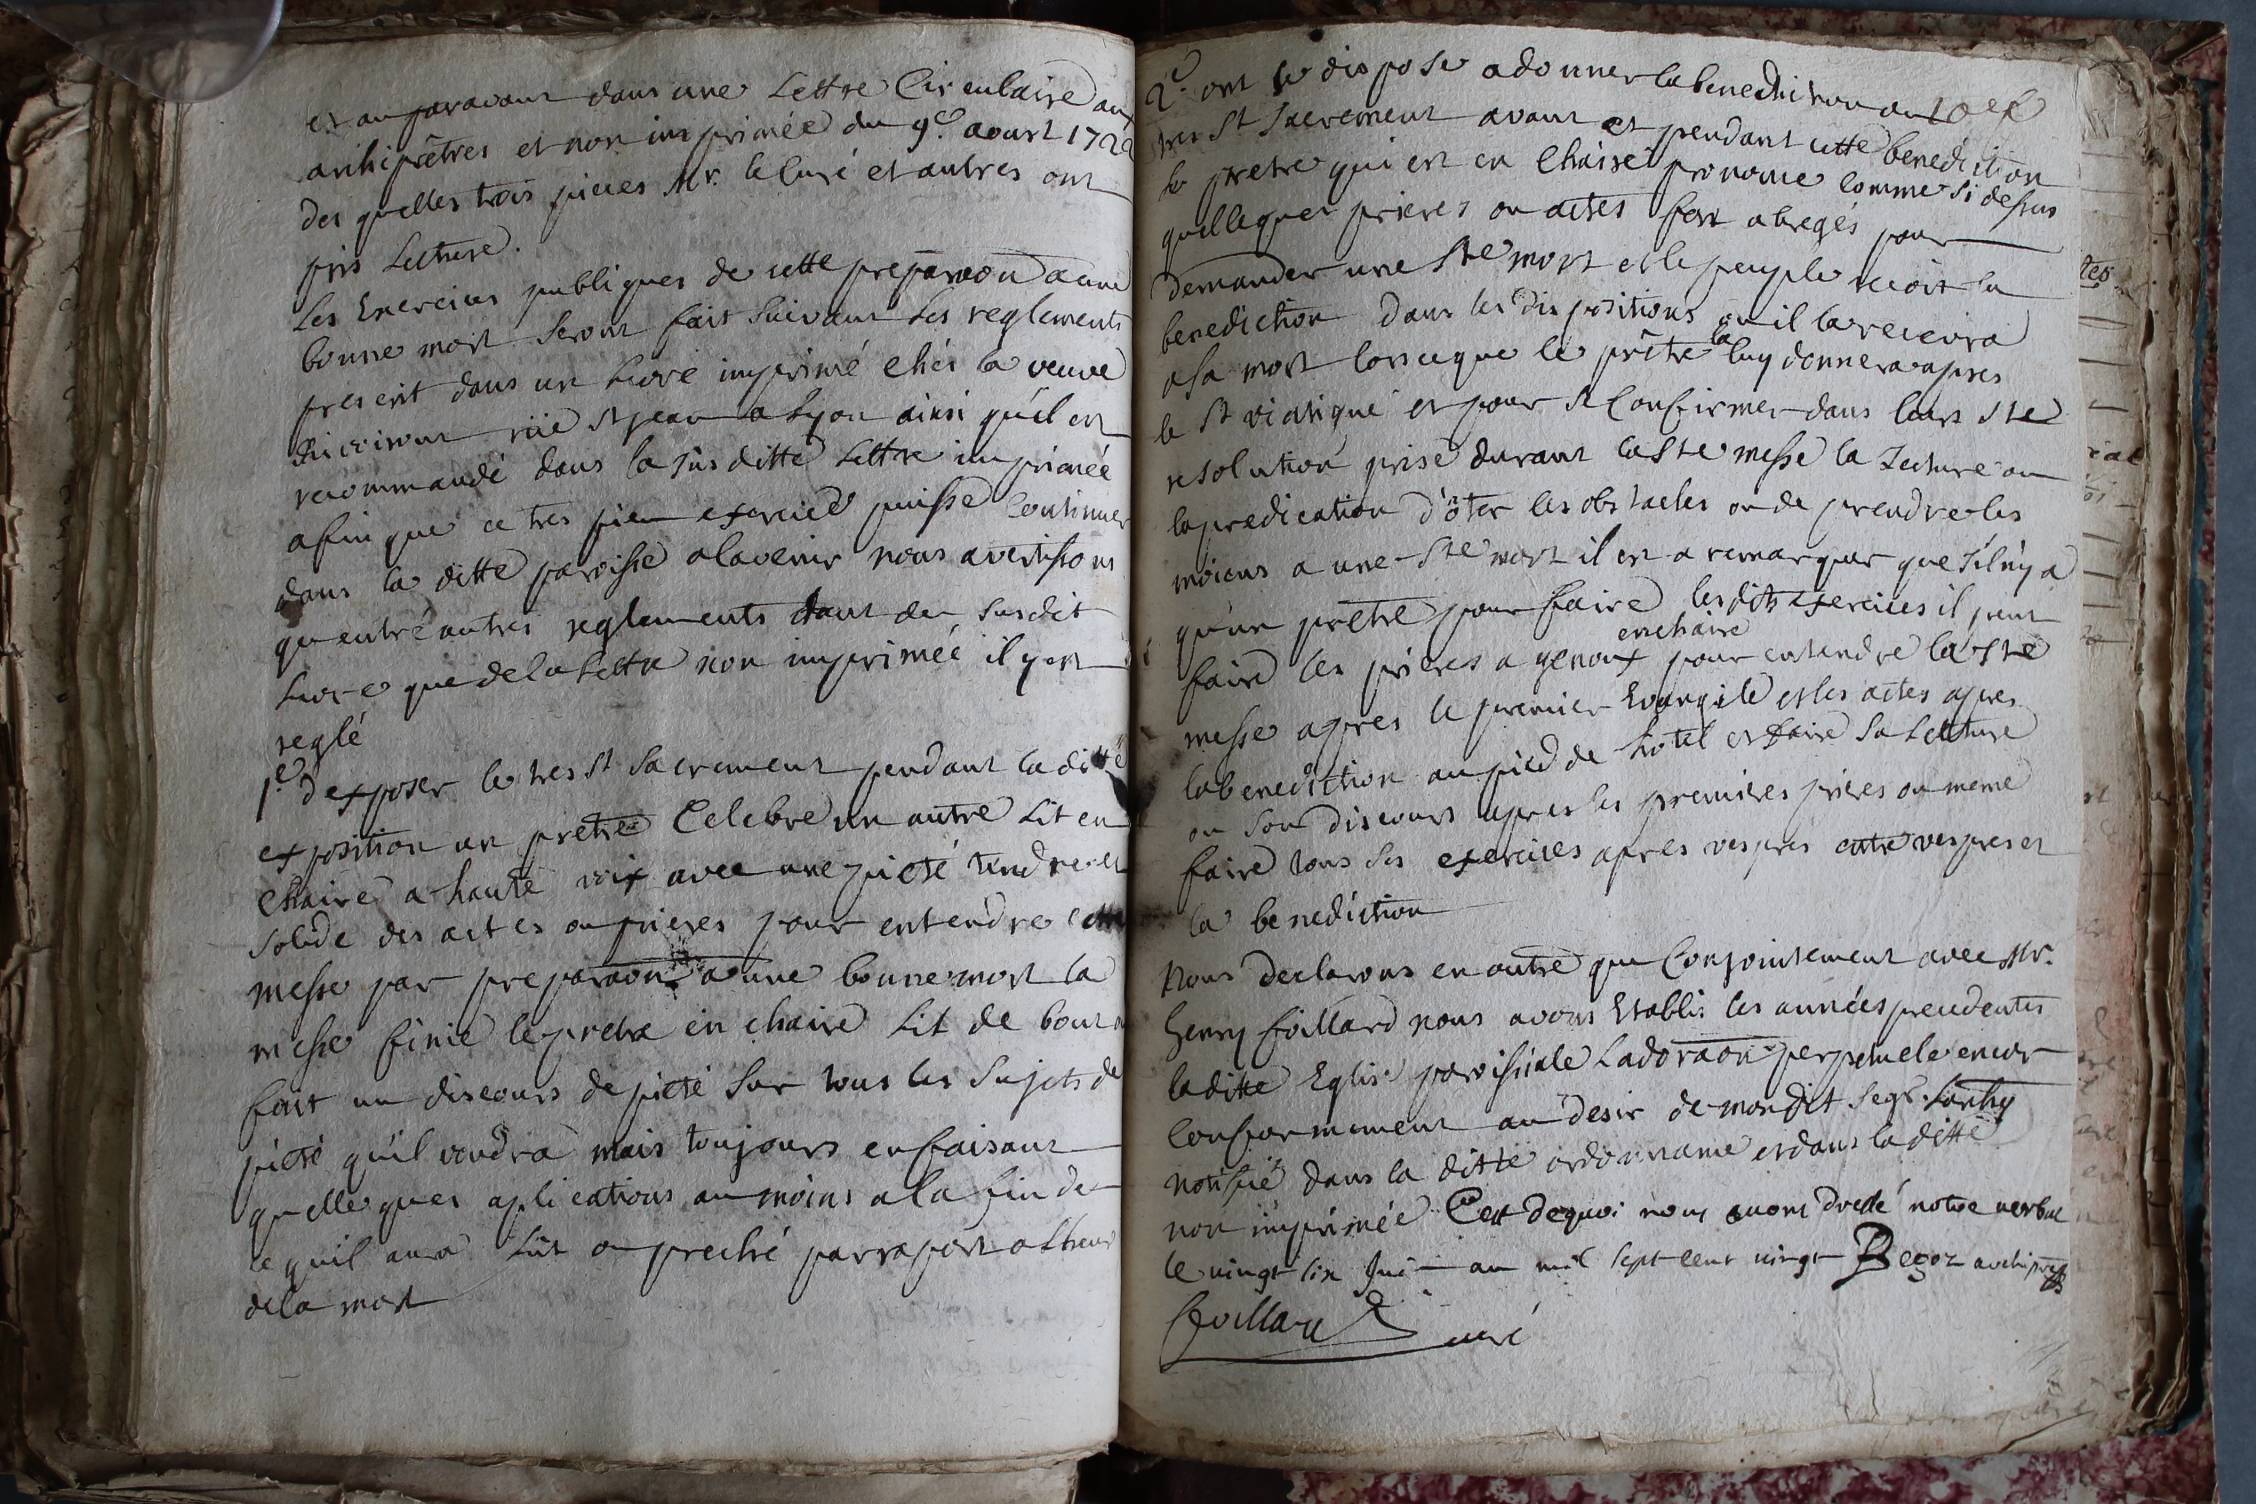 et auparavant dans une Lettre Circulaire aux
archiprêtres et non imprimée du 9e. aoust 1722
des quelles trois pieces Mr. le Curé et autres ont
pris Lecture.
Les Exercices publiques de cette preparaon a une
bonne mort seront fait suivant Les reglements
prescrit dans un Livre imprimé chés la veuve
rüe st jean a Lyon ainsi qu'il est
recommandé dans la susditte Lettre imprimée
afin que ce tres pieux exercice puisse Continuer
dans la ditte paroisse a lavenir nous avertissons
qu'entre autres reglements tant du susdit
Livre que de la Lettre non imprimée il y est
reglé
1e. d'exposer le tres st sacrement pendant la ditte
exposition un pretre Celebre un autre Lit en
Chaire a haute voix avec une pieté tendre et
solide des actes ou prieres pour entendre
messe par preparaon a une bonne mort la
messe finie le pretre en chaire Lit de bout ou
fait un discours de pieté sur tous les sujets de
pieté qu'il voudra mais toujours en faisant
quelleques aplications au moins a la fin de
ce qu'il aura Lût ou preché par raport a Lheure
de la mort
2e. ont se dispose a donner la benediction du
tres st sacrement avant et pendant cette benediction
le pretre qui est en Chaire prononce comme si dessus
quelleques prieres ou actes fort abregés pour
demander une ste mort et le peuple recoit la
benediction dans les dispositions qu'il la recevra
a la mort lorsceque le prêtre la luy donnera apres
le st viatique et pour se Confirmer dans leurs ste
resolution prise durant la ste messe la Lecture ou
la predication d'ôter les obstacles ou de prendre les
moiens a une ste mort il est a remarquer que s'il n'y a
qu'un pretre pour faire lesdits exercices il peut
faire les prieres a genoux en chaire pour entendre la ste
messe apres le premier Evangile et les actes apres
la benediction au pied de Lotel et faire sa Lecture
ou son discours apres les premieres prieres ou meme
faire tous ses exercices apres vespres entre vespres et
la benediction
Nous declarons en outre que Conjointement avec Mr.
henry foillard nous avons Etablis les années precedentes
la ditte Eglise paroissiale Ladoraon perpetuele encor
Conformement au desir de mondit segr.
notifié dans la ditte ordonnance et dans la ditte
non imprimée Cest dequoi nous avons dressé notre verbal
le vingt six Juin an mil sept cent vingt Begoz archiprê
foillard curé